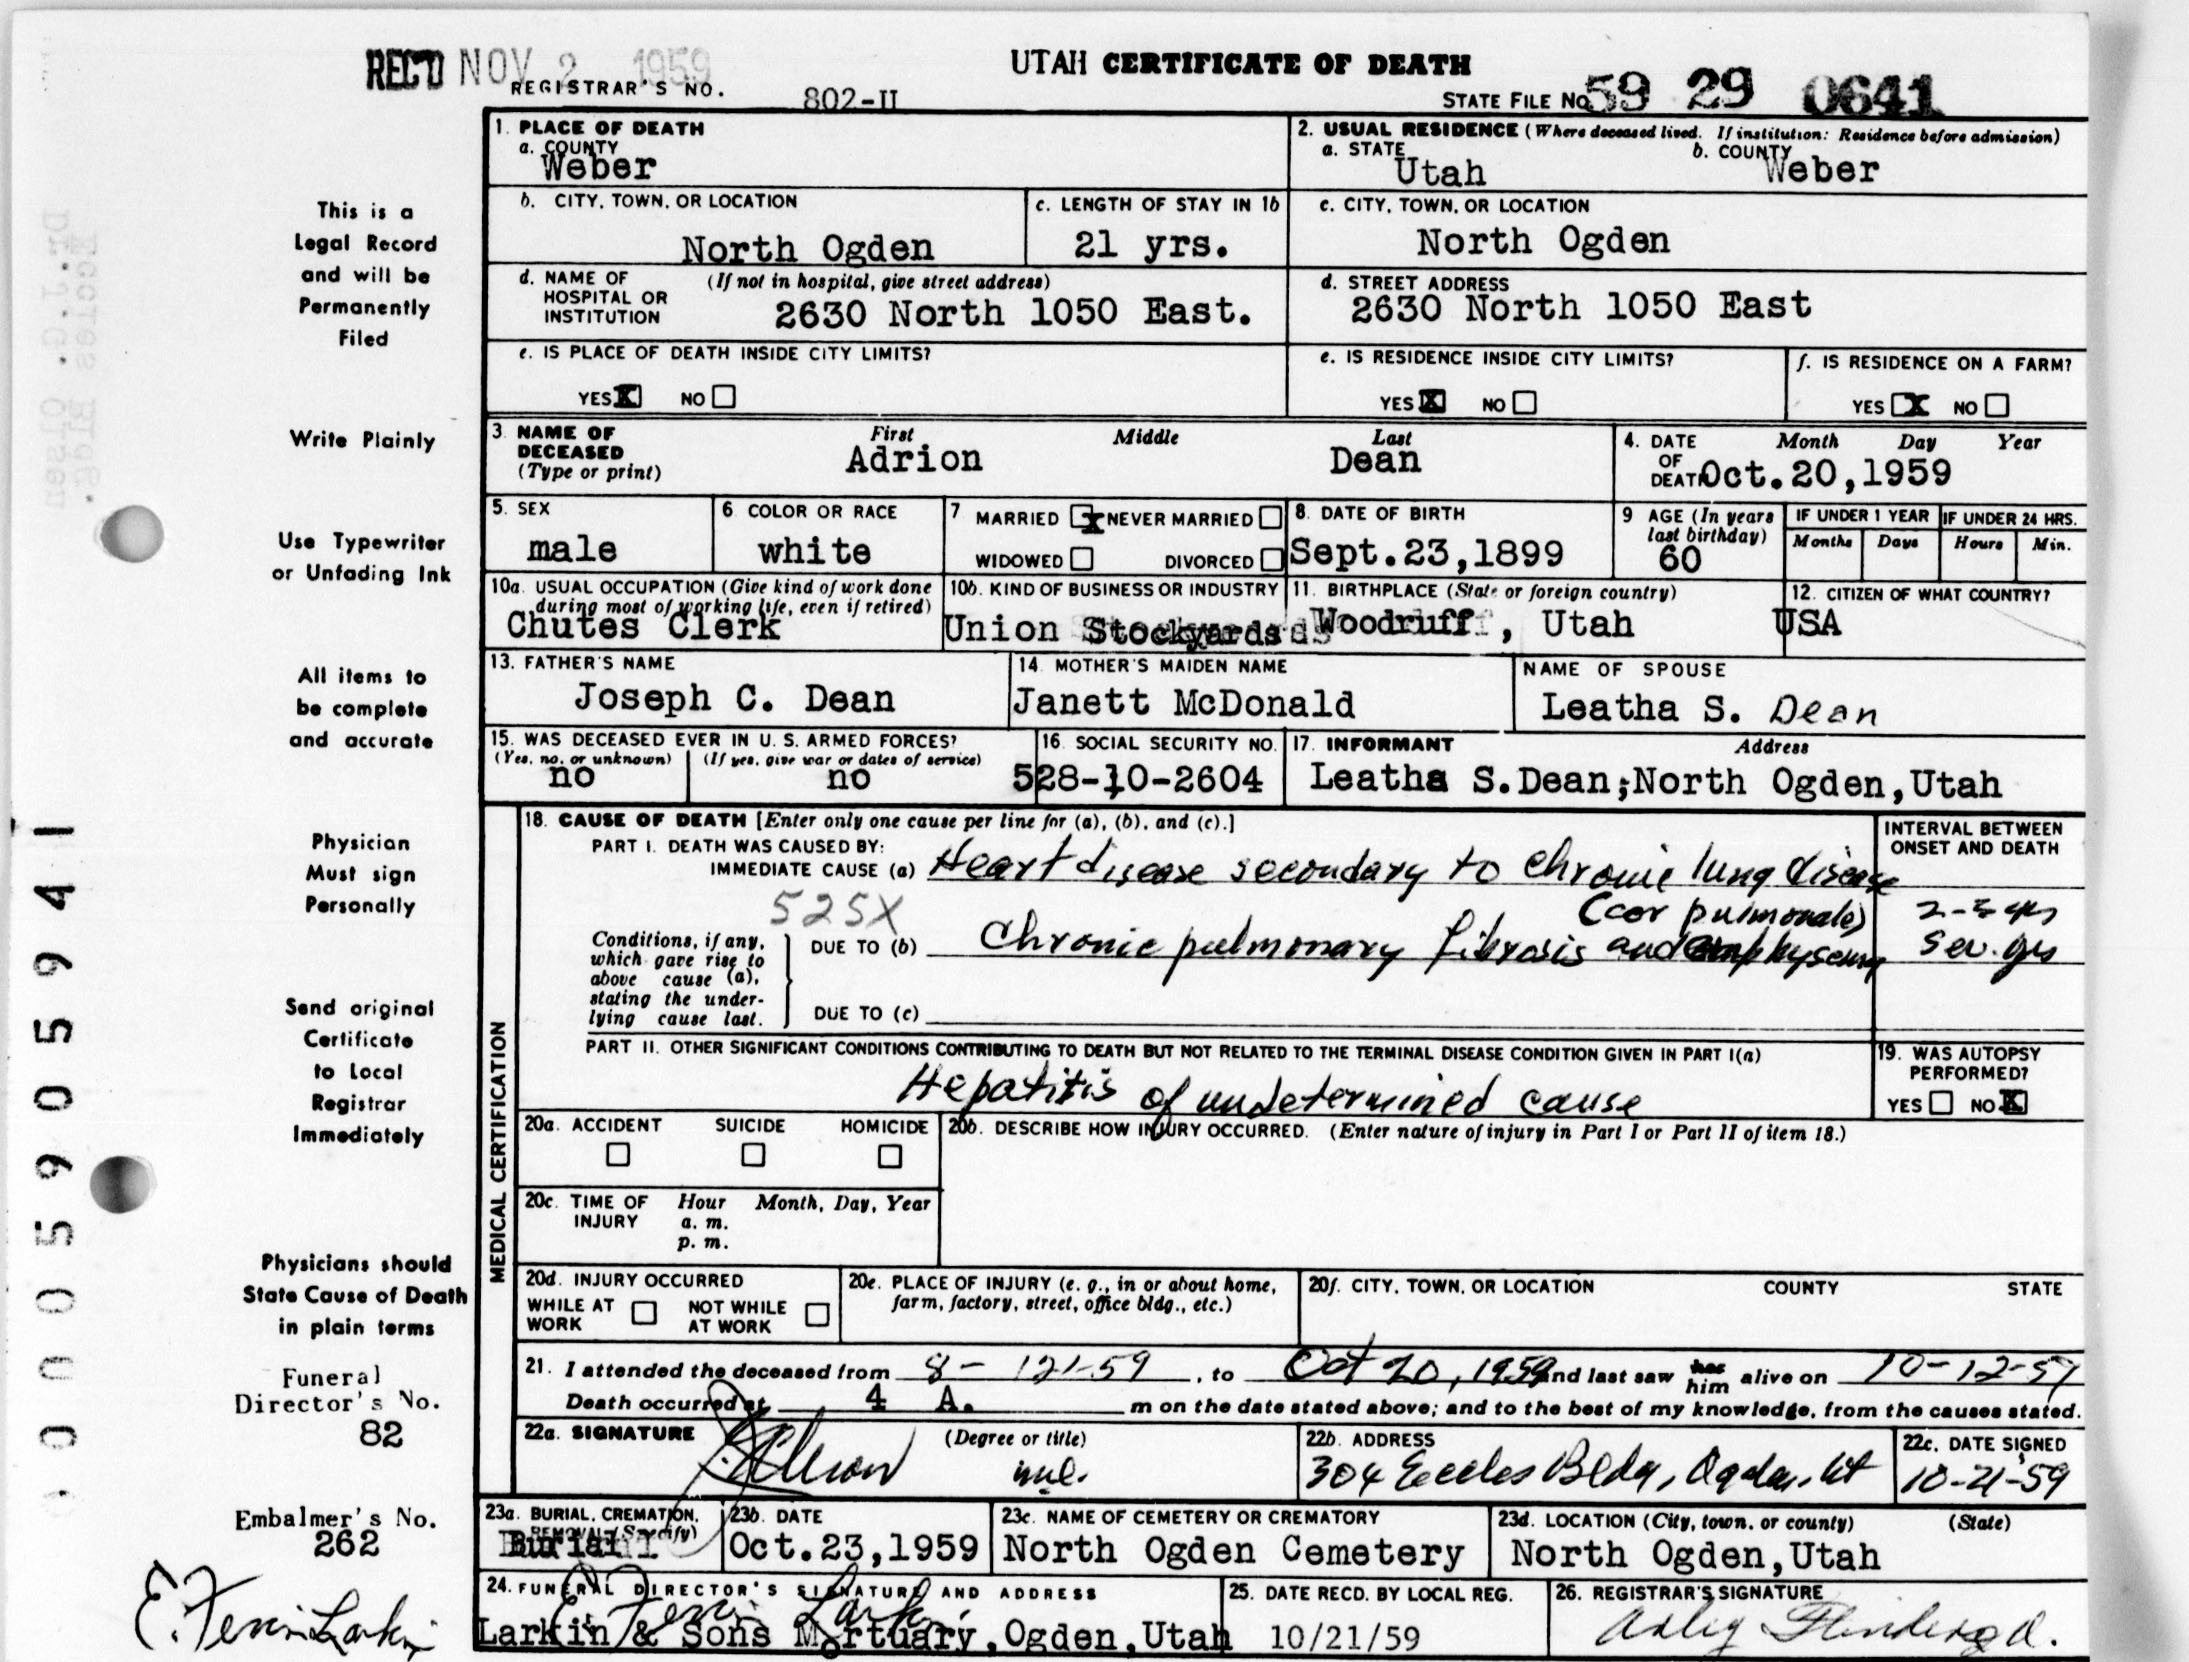 REC'D NOV 2 1959
UTAH CERTIFICATE OF DEATH
REGISTRAR'S NO. 802-II
STATE FILE NO 59 29 0641
1. PLACE OF DEATH
a. COUNTY
Weber
2. USUAL RESIDENCE (Where deceased lived. If institution: Residence before admission)
a. STATE Utah b. COUNTY Weber
b. CITY, TOWN, OR LOCATION
North Ogden
c. LENGTH OF STAY IN 1b
21 yrs.
c. CITY, TOWN, OR LOCATION
North Ogden
d. NAME OF HOSPITAL OR INSTITUTION (If not in hospital, give street address)
2630 North 1050 East.
d. STREET ADDRESS
2630 North 1050 East
e. IS PLACE OF DEATH INSIDE CITY LIMITS?
YES X NO
e. IS RESIDENCE INSIDE CITY LIMITS?
YES X NO
f. IS RESIDENCE ON A FARM?
YES X NO
3. NAME OF DECEASED (Type or print)
First Middle Last
Adrion Dean
4. DATE OF DEATH Month Day Year
Oct.20,1959
5. SEX
male
6. COLOR OR RACE
white
7 MARRIED X NEVER MARRIED
WIDOWED DIVORCED
8. DATE OF BIRTH
Sept.23,1899
9 AGE (In years last birthday)
60
IF UNDER 1 YEAR
Months Days
IF UNDER 24 HRS.
Hours Min.
10a. USUAL OCCUPATION (Give kind of work done during most of working life, even if retired)
Chutes Clerk
10b. KIND OF BUSINESS OR INDUSTRY
Union Stockyards
11. BIRTHPLACE (State or foreign country)
Woodruff, Utah
12. CITIZEN OF WHAT COUNTRY?
USA
13. FATHER'S NAME
Joseph C. Dean
14. MOTHER'S MAIDEN NAME
Janett McDonald
NAME OF SPOUSE
Leatha S. Dean
15. WAS DECEASED EVER IN U. S. ARMED FORCES?
(Yes, no, or unknown) (If yes, give war or dates of service)
no no
16. SOCIAL SECURITY NO.
528-10-2604
17. INFORMANT Address
Leatha S.Dean;North Ogden,Utah
MEDICAL CERTIFICATION
18. CAUSE OF DEATH [Enter only one cause per line for (a), (b), and (c).]
PART I. DEATH WAS CAUSED BY:
IMMEDIATE CAUSE (a) Heart disease secondary to chronic lung disease
(cor pulmonale)
525X
INTERVAL BETWEEN ONSET AND DEATH
2-3 yrs
Conditions, if any, which gave rise to above cause (a), stating the underlying cause last.
DUE TO (b) Chronic pulmonary fibrosis and emphysema
sev. yrs
DUE TO (c)
PART II. OTHER SIGNIFICANT CONDITIONS CONTRIBUTING TO DEATH BUT NOT RELATED TO THE TERMINAL DISEASE CONDITION GIVEN IN PART I(a)
Hepatitis of undetermined cause
19. WAS AUTOPSY PERFORMED?
YES NO X
20a. ACCIDENT SUICIDE HOMICIDE
20b. DESCRIBE HOW INJURY OCCURRED. (Enter nature of injury in Part I or Part II of item 18.)
20c. TIME OF INJURY Hour Month, Day, Year
a. m.
p. m.
20d. INJURY OCCURRED
WHILE AT WORK NOT WHILE AT WORK
20e. PLACE OF INJURY (e. g., in or about home, farm, factory, street, office bldg., etc.)
20f. CITY, TOWN, OR LOCATION COUNTY STATE
21. I attended the deceased from 8-12-59, to Oct 20, 1959 and last saw her him alive on 10-12-59
Death occurred at 4 A. m on the date stated above; and to the best of my knowledge, from the causes stated.
22a. SIGNATURE (Degree or title)
22b. ADDRESS
304 Eccles Bldg, Ogden, Ut
22c. DATE SIGNED
10-21-59
23a. BURIAL, CREMATION, REMOVAL (Specify)
Burial
23b. DATE
Oct.23,1959
23c. NAME OF CEMETERY OR CREMATORY
North Ogden Cemetery
23d. LOCATION (City, town, or county) (State)
North Ogden,Utah
24. FUNERAL DIRECTOR'S SIGNATURE AND ADDRESS
E. Fervin Larkin
Larkin & Sons Mortuary,Ogden,Utah
25. DATE RECD. BY LOCAL REG.
10/21/59
26. REGISTRAR'S SIGNATURE
This is a
Legal Record
and will be
Permanently
Filed
Write Plainly
Use Typewriter
or Unfading Ink
All items to
be complete
and accurate
Physician
Must sign
Personally
Send original
Certificate
to Local
Registrar
Immediately
Physicians should
State Cause of Death
in plain terms
Funeral
Director's No.
82
Embalmer's No.
262
E. Fervin Larkin
Dr. J.G. Olsen
Eccles Bldg.